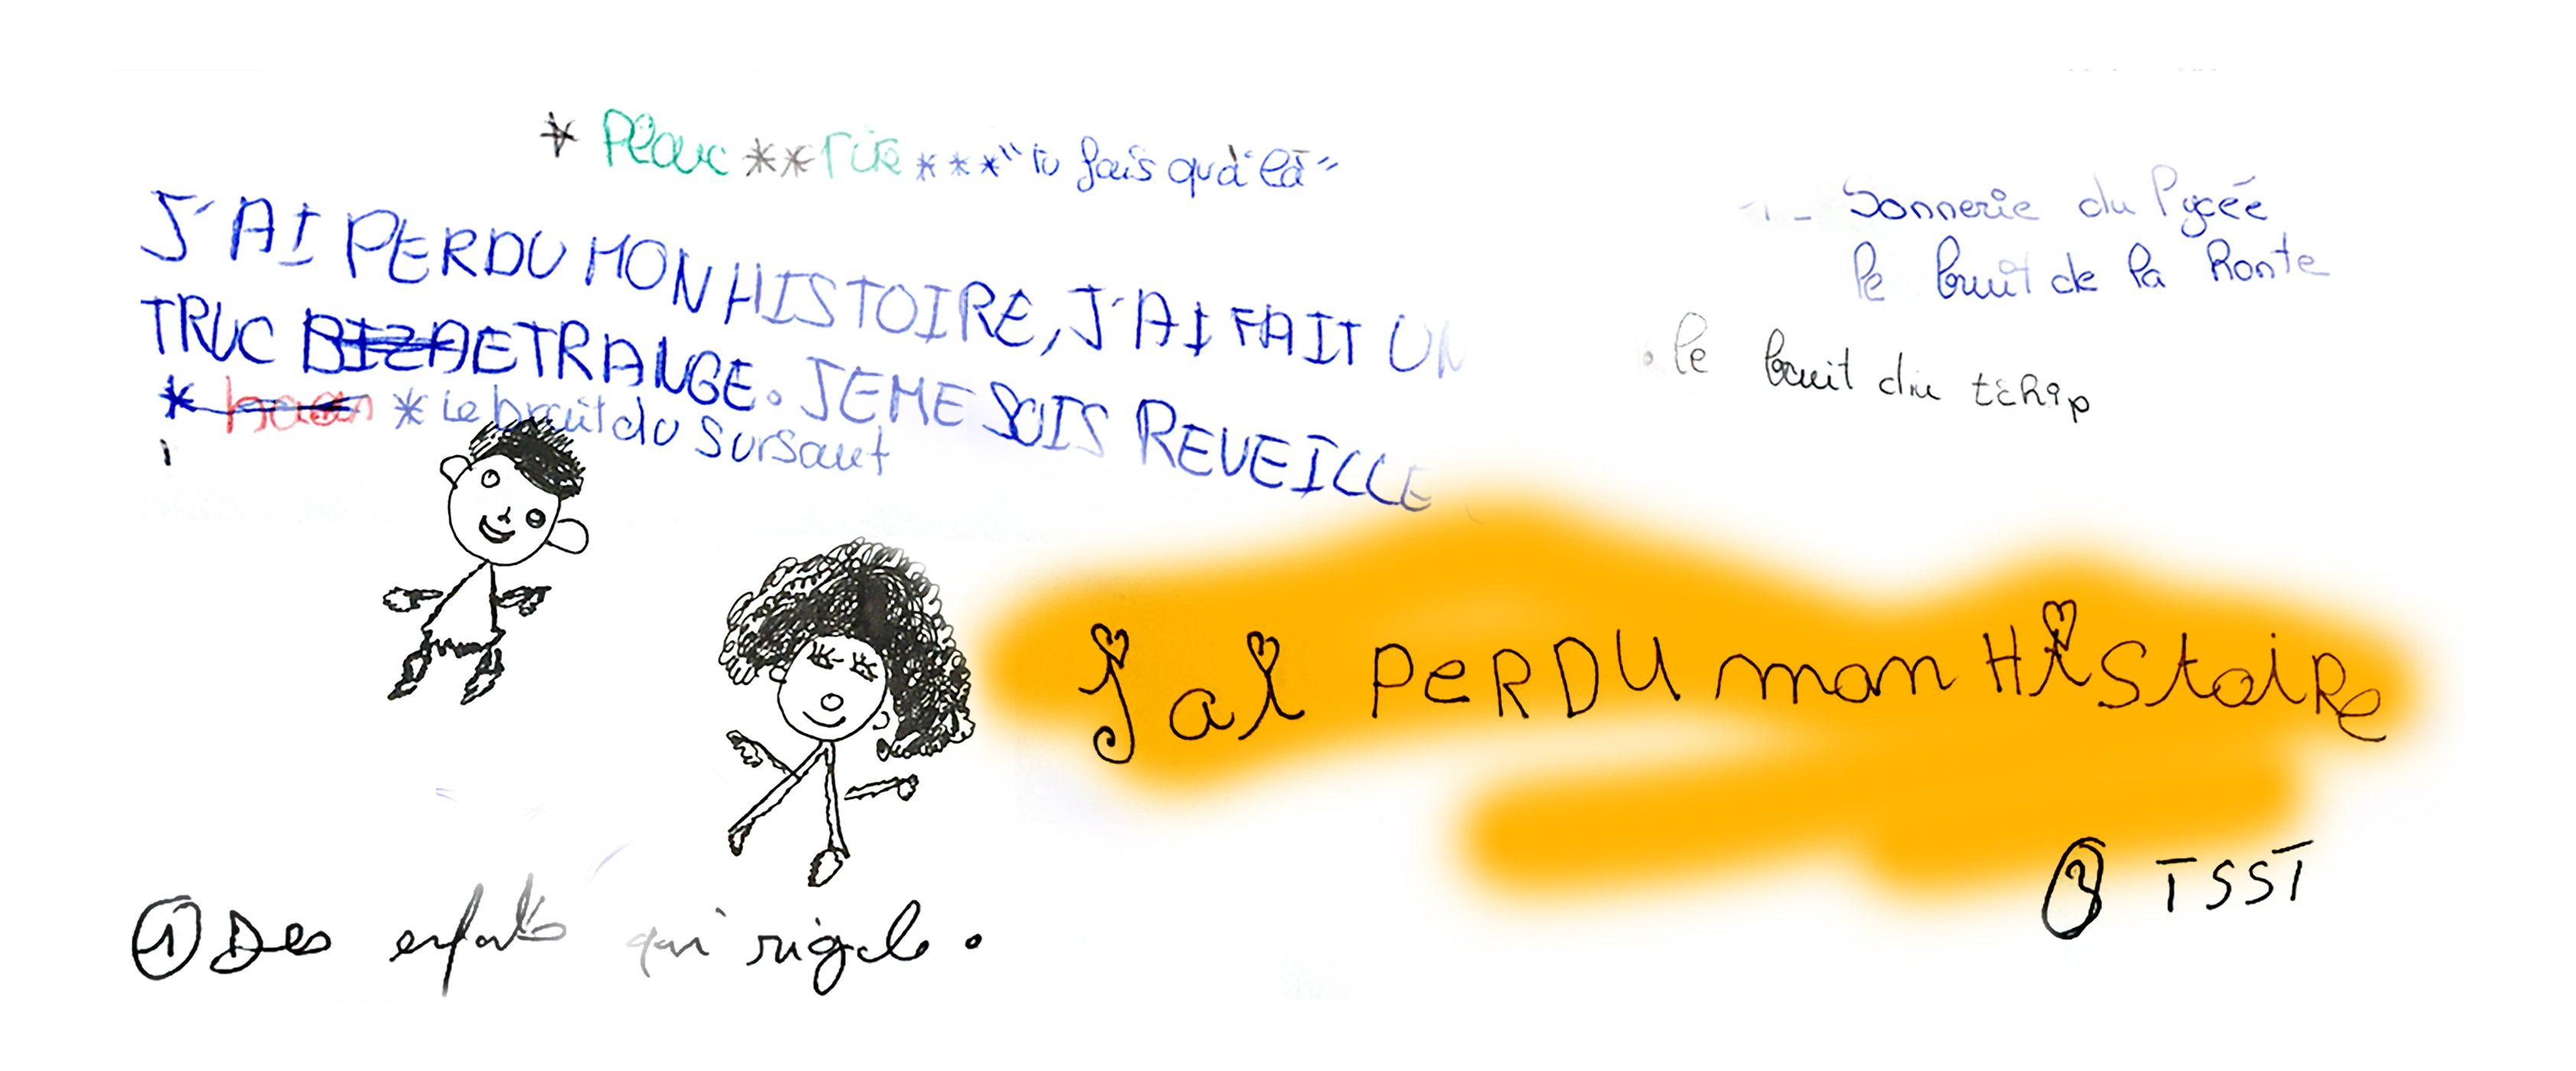 * Plouc ** rire *** "tu fais qu'à là"
J'AI PERDU MON HISTOIRE, J'AI FAIT UN
TRUC BIZA ETRANGE. JE ME SUIS REVEILLE
* * Le bruit du sursaut
1 - Sonnerie du lycée
le bruit de la honte
. le bruit du tchip
J'ai PERDU mon HIStoiRe
① Des enfants qui rigole.
TSST